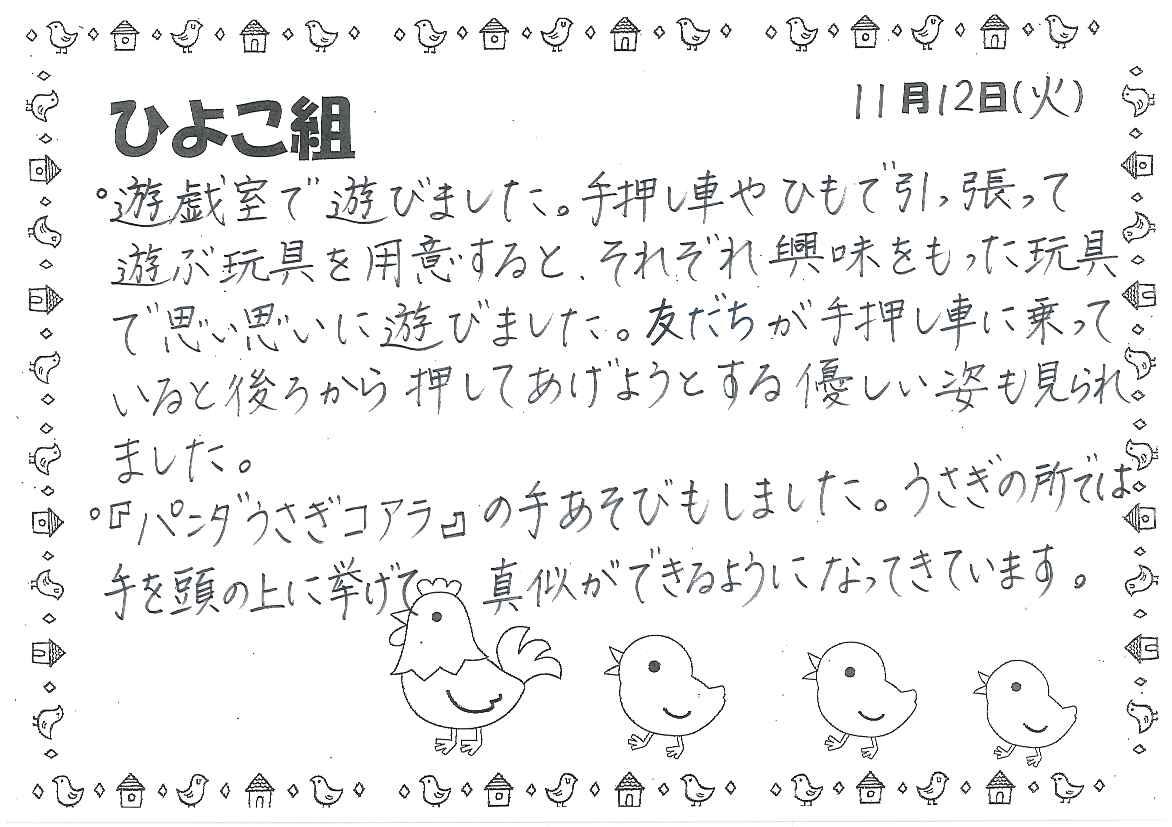 11月12日(火)
ひよこ組
○遊戯室で遊びました。手押し車やひもで引っ張って
遊ぶ玩具を用意すると、それぞれ興味をもった玩具
で思い思いに遊びました。友だちが手押し車に乗って
いると後ろから押してあげようとする優しい姿も見られ
ました。
○『パンダうさぎコアラ』の手あそびもしました。うさぎの所では
手を頭の上に挙げて 真似ができるようになってきています。